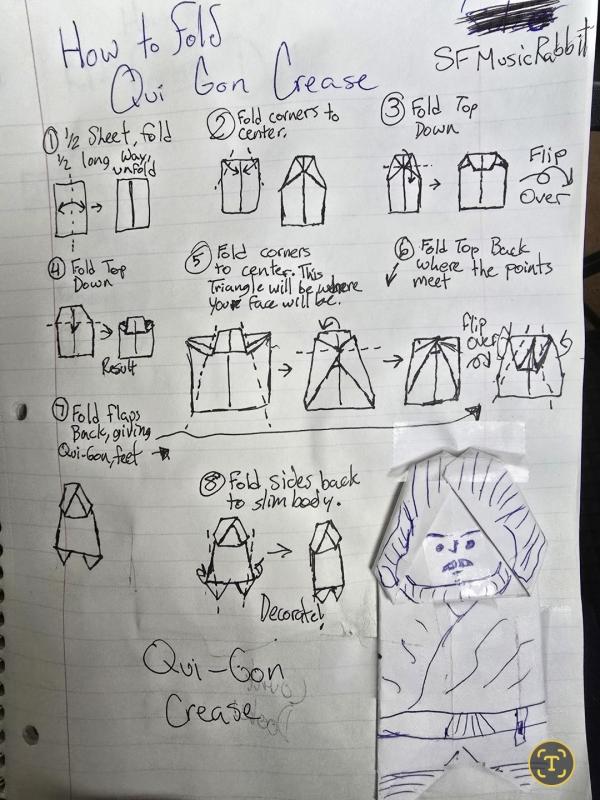 How to fold
Qui Gon Crease
SFMusicRabbit
① 1/2 Sheet, fold
1/2 long way,
unfold
② Fold corners to
center.
③ Fold Top
Down
Flip
Over
④ Fold Top
Down
Result
⑤ Fold corners
to center. This
Triangle will be where
your face will be.
⑥ Fold Top Back
where the points
meet
flip
over
⑦ Fold flaps
Back, giving
Qui-Gon, feet
⑧ Fold sides back
to slim body.
Decorate!
Qui-Gon
Crease
T